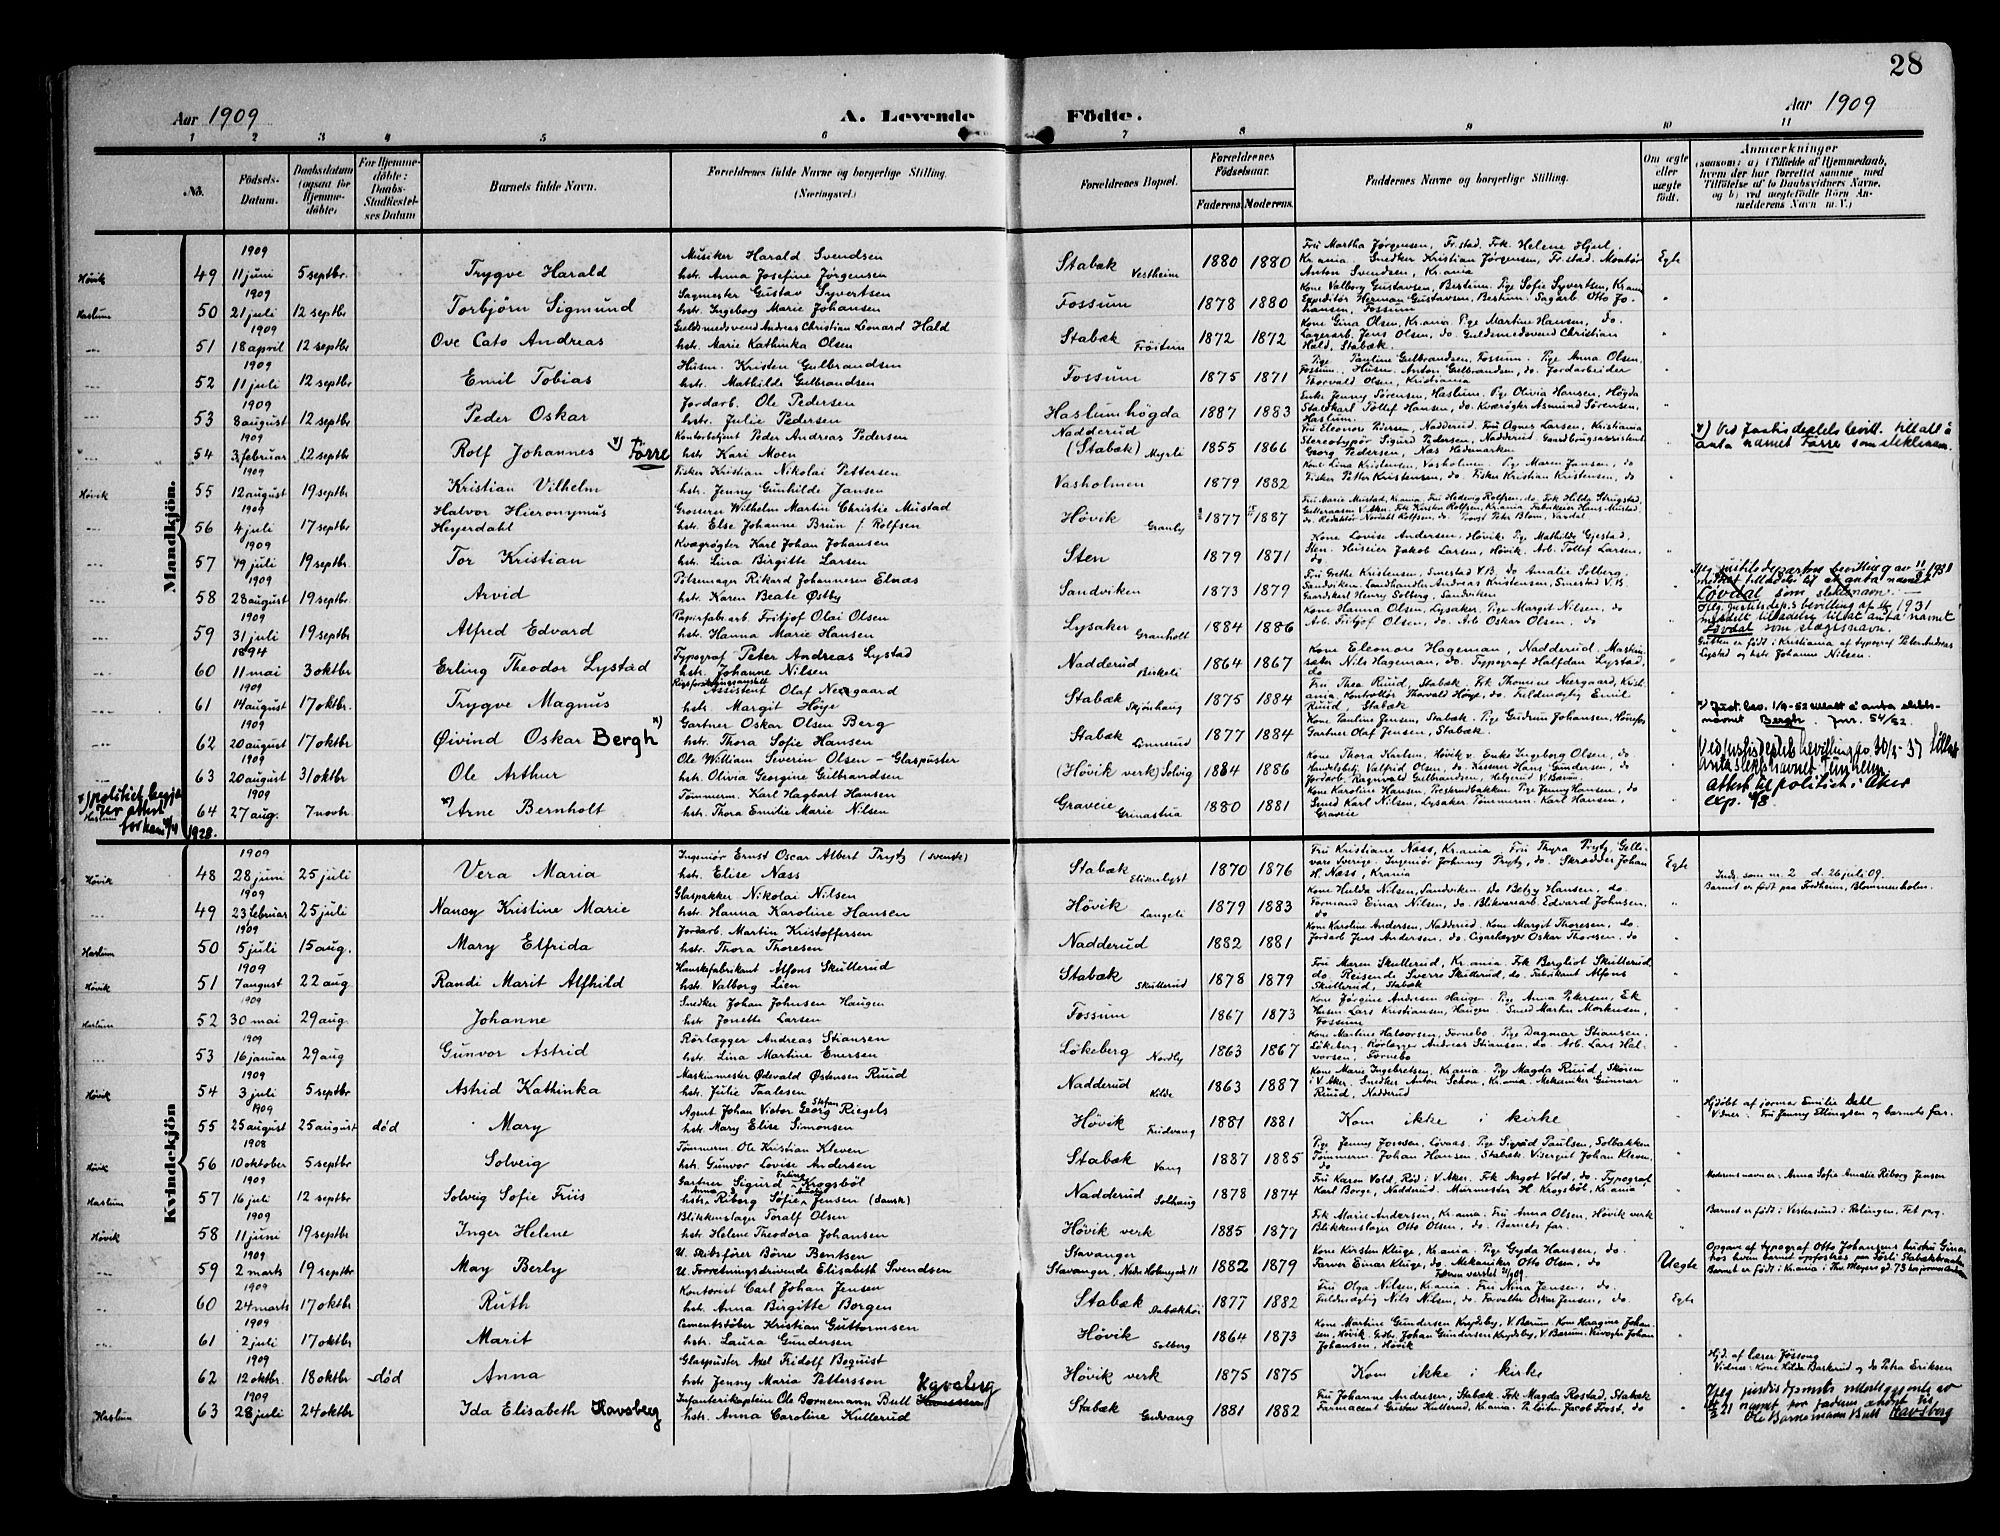 28
Aar 1909
A. Levende Födte.
Aar 1909
1 2 3 4 5 6 7 8 9 10 11
No.
Födsels-Datum.
Daabsdatum (ogsaa for Hjemmedöbte)
For Hjemmedöbte: Daabs-Stadfæstelses Datum
Barnets fulde Navn.
Forældrenes fulde Navne og borgerlige Stilling. (Næringsvei.)
Forældrenes Bopæl.
Forældrenes Födselsaar. Faderens. Moderens.
Faddernes Navne og borgerlige Stilling.
Om ægte eller uægte födt.
Anmærkninger (saasom: a) (Tilfælde af Hjemmedaab, hvem der har forrettet samme, med Tilföielse af to Daabsvidners Navne, og b) ved uægtefödte Börn Anmelderens Navn m. V.)
Mandkjön.
Høvik 49 1909 11 juni 5 septbr. Trygve Harald Musiker Harald Svendsen hstr. Anna Josefine Jørgensen Stabæk Vestheim 1880 1880 Fru Martha Jørgensen, Fr.stad. Frk. Helene Hjerl, Kr.ania. Snedker Kristian Jørgensen, Fr.stad. Montör Anton Svendsen, Kr.ania Egte
Haslum 50 1909 21 juli 12 septbr Torbjörn Sigmund Sagmester Gustav Syvertsen hstr. Ingeborg Marie Johansen Fossum 1878 1880 Kone Valborg Gustavsen, Bærtum. Pige Sofie Syvertsen, Kr.ania Expeditör Herman Gustavsen, Bærtum. Sagarb. Otto Johansen, Fossum "
51 1909 18 april 12 septbr Ove Cato Andreas Guldsmedsvend Andreas Christian Leonard Hald hstr. Marie Kathinka Olsen Stabæk 1872 1872 Kone Gina Olsen, Kr.ania. Pige Martine Hansen, do. Lagerarb. Jens Olsen, do. Guldsmedsvend Christian Hald, Stabæk. "
52 1909 11 juli 12 septbr Emil Tobias Husm. Kristen Gulbrandsen hstr. Mathilde Gulbrandsen Fossum 1875 1871 Pige Pauline Gulbrandsen, Fossum. Pige Anna Olsen, Fossum. Husm. Anton Gulbrandsen, do. Jordarbeider Thorvald Olsen, Kristiania "
53 1909 8 august 12 septbr. Peder Oskar Jordarb. Ole Pedersen hstr. Julie Pedersen Haslumhögda 1887 1883 Enke Jenny Sörensen, Haslum. Pige Olivia Hansen, Högda Staldkarl Tollef Hansen, do. Kvægrögter Asmund Sörensen, Haslum. "
54 1909 3 februar 12 septbr. Rolf Johannes *) Förre Kontorbetjent Peder Andreas Pedersen hstr Kari Moen Nadderud (Stabæk) Myrli 1855 1866 Fru Eleonore Piersen, Nadderud. Fru Agnes Larsen, Kristiania Stereotypör Sigurd Pedersen, Nadderud. Gaardbrugsassistent Georg Pedersen, Næs Hedemarken " *) Ved Justisdeptets bevill. tillatt å anta navnet Förre som slektsnavn.
Høvik 55 1909 12 august 19 septbr Kristian Vilhelm Fisker Kristian Nikolai Pettersen hstr. Jenny Gunhilde Jansen Vasholmen 1879 1882 Kone Lina Kristensen, Vasholmen. Pige Maren Jansen, do Fisker Petter Kristensen, do. Fisker Kristian Kristensen, do "
56 1909 4 juli 17 septbr Halvor Hieronymus Heyerdahl Grosserer Wilhelm Martin Christie Mustad hstr. Else Johanne Brun f. Rolfsen Høvik Granly 1877 1887 Fru Marie Mustad, Kr.ania, Fru Hedevig Rolfsen, do. Frk Hilda Ringstad, V. Aker. Frk Kirsten Rolfsen, Kr.ania Fabrikeier Hans Mustad, do. Redaktör Nordahl Rolfsen, do. Provst Peter Blom, "
57 1909 19 juli 19 septbr. Tor Kristian Kvægrögter Karl Johan Johansen hstr. Lina Birgitte Larsen Sten 1879 1871 Kone Lovise Andersen, Høvik. Pige Mathilde Gjestad, Sten. Huseier Jakob Larsen, Høvik. Arb. Tollef Larsen, do "
58 1909 28 august 19 septbr Arvid Pölsemager Rikard Johannesen Elnæs hstr. Karen Beate Østby Sandviken 1873 1879 Fru Grethe Kristensen, Smestad V.B. do Amalie Solberg, Sandviken. Landhandler Andreas Kristensen, Smestad V.B. Gaardskarl Henry Solberg, Sandviken "
59 1909 31 juli 19 septbr Alfred Edvard Papirfabr.arb. Fritjof Olai Olsen hstr. Hanna Marie Hansen Lysaker Granholt 1884 1886 Kone Hanna Olsen, Lysaker. Pige Margit Nilsen, do Arb. Fritjof Olsen, do. Arb. Oskar Olsen, do. "
Ifølg. Justitsdep.s bevilling af 1931 meddelt tilladelse til at anta navnet Løvdal som slægtsnavn.
60 1894 11 mai 3 oktbr Erling Theodor Lystad Typograf Peter Andreas Lystad hstr. Johanne Nilsen Nadderud Birkeli 1864 1867 Kone Eleonore Hageman, Nadderud. Maskinsaker Nils Hageman, do. Typograf Halfdan Lystad, do " Gutten er født i Kristiania af typograf Peter Andreas Lystad og hstr. Johanne Nilsen.
61 1909 14 august 17 oktbr. Trygve Magnus Rigsforsikringsanstalt Assistent Olaf Neergaard hstr. Margit Høye Stabæk Skjønhaug 1875 1884 Fru Thea Ruud, Stabæk. Frk Thomine Neergaard, Kristiania. Kontrollör Thorvald Høye, do. Fuldmægtig Emil Ruud, Stabæk "
62 1909 20 august 17 oktbr. Øivind Oskar Bergh *) Gartner Oskar Olsen Berg hstr. Thora Sofie Hansen Stabæk 1877 1884 Kone Pauline Jensen, Stabæk. Pige Gudrun Johansen, Hönefos. Gartner Olaf Jensen, Stabæk. " *) Just. bev. 1/9-52 tillatt å anta slektsnavnet Bergh. Jnr. 54/52.
63 1909 20 august 31 oktbr Ole Arthur Ole William Severin Olsen – Glaspuster hstr. Olivia Georgine Gulbrandsen (Høvik verk) Solvig 1884 1886 Kone Thora Karlsen, Høvik v. Enke Ingeborg Olsen, do. Handelsbetj. Valfrid Olsen, do. Kasserer Hans Gundersen, do. Jordarb. Ragnvald Gulbrandsen, Helgerud V. Bærum. "
*) politiet begjærer attest for ham 1928.
Haslum 64 1909 27 aug. 7 novbr. *) Arne Bernholt Tømmerm. Karl Hagbart Hansen hstr. Thora Emilie Marie Nilsen Graveie Grinastua 1880 1881 Kone Karoline Hansen, Presterudbakken. Pige Jenny Hansen, do. Smed Karl Nilsen, Lysaker. Tømmerm. Karl Hansen, Graveie " Ved justisdeptets bevilling av 30/5-37 tillatt anta slektsnavnet attest til politiet i Aker exp.
Kvindekjön
Høvik 48 1909 28 juni 25 juli Vera Maria Ingeniør Ernst Oscar Albert Prytz (svensk) hstr. Elise Næss Stabæk Elisenlyst 1870 1876 Fru Kristiane Næss, Kr.ania. Fru Thyra Prytz, Gellivare Sverige. Ingeniør Johnny Prytz, do. Skrædder Johan H. Næss, Kr.ania Egte Indg. som nr. 2 d. 26 juli 09. Barnet er født paa Fridheim, Blommenholm.
49 1909 23 februar 25 juli Nancy Kristine Marie Glaspakker Nikolai Nilsen hstr. Hanna Karoline Hansen Høvik Langeli 1879 1883 Kone Hulda Nilsen, Sandviken. do Betzy Hansen, do. Formand Einar Nilsen, do. Blikvarearb. Edvard Johnsen, do "
Haslum 50 1909 5 juli 15 aug. Mary Elfrida Jordarb. Martin Kristoffersen hstr. Thora Thoresen Nadderud 1882 1881 Kone Karoline Andersen, Nadderud. Kone Margit Thoresen, do. Jordarb Jens Andersen, do. Cigarlægger Oskar Thoresen, do "
Høvik 51 1909 7 august 22 aug Randi Marit Alfhild Hanskefabrikant Alfons Skullerud hstr. Valborg Lien Stabæk Skullerud 1878 1879 Fru Maren Skullerud, Kr.ania. Frk Bergliot Skullerud, do. Reisende Sverre Skullerud, do. Fabrikant Alfons Skullerud, Stabæk "
Haslum 52 1909 30 mai 29 aug. Johanne Snedker Johan Johnsen Haugen hstr. Jonette Larsen Fossum 1867 1873 Kone Jørgine Andersen Haugen. Pige Anna Petersen, Ek Husm. Lars Kristiansen, Haugen. Smed Martin Markussen, Fossum "
53 1909 16 januar 29 aug Gunvor Astrid Rörlægger Andreas Stiansen hstr. Lina Martine Enersen Løkeberg Nordly 1863 1867 Kone Martine Halvorsen, Fornebo. Pige Dagmar Stiansen, Løkeberg. Rörlægger Andreas Stiansen, do. Arb. Lars Halvorsen, Fornebo "
Høvik 54 1909 3 juli 5 septbr Astrid Kathinka Maskinmester Ødevald Østensen Ruud hstr. Julie Paalesen Nadderud Kilde 1863 1887 Kone Marie Ingebretsen, Kr.ania. Pige Magda Ruud, Skøien i V. Aker. Snedker Anton Schou, Kr.ania. Mekaniker Gunnar Ruud, Nadderud "
55 1909 25 august 25 august död Mary Agent Johan Victor Georg Stefan Riegels hstr. Mary Elise Simonsen Høvik Fridvang 1881 1881 Kom ikke i kirke " Hjdøbt af jormor Emilie Dell Vidner: Fru Jenny Ellingsen og barnets far.
Høvik 56 1908 10 oktober 5 septbr Solveig Tømmerm. Ole Kristian Kleven hstr. Gunvor Lovise Andersen Stabæk Vang 1887 1885 Pige Jenny Jonsson, Løvaas. Pige Sigrid Paulsen, Solbakken Tømmerm. Johan Hansen, Stabæk. Visergut Johan Kleven, do "
Haslum 57 1909 16 juli 12 septbr Solveig Sofie Friis Gartner Sigurd Krogsböl hstr. Anna Riborg Sofie Jensen (dansk) Nadderud Solhaug 1878 1874 Fru Karen Vold, Röd i V. Aker. Frk Margot Vold, do. Typograf Karl Borge, Nadderud. Murmester H. Krogsböl, Kr.ania " Moderens navn er: Anna Sofie Amalie Riborg Jensen
Høvik 58 1909 11 juni 19 septbr Inger Helene Blikkenslager Toralf Olsen hstr Helene Theodora Johansen Høvik verk 1885 1877 Frk. Marie Andersen, Kr.ania. Fru Anna Olsen, Høvik verk Blikkenslager Otto Olsen, do. Barnets far. " Barnet er født i Vestersund i Rælingen, Fet pg.
59 1909 2 marts 19 septbr May Berly U. Skibsfører Börre Bentsen U. Forretningsdrivende Elisabeth Svendsen Stavanger Stavanger, 11 1882 1879 Kone Kirsten Kluge, Kr.ania. Pige Gyda Hansen, do. Farver Einar Kluge, do. Mekaniker Otto Olsen, do Uegte Opgave af typograf Otto Johansens hustru Gina, hos hvem barnet opfostres paa Sörli Stabæk Barnet er født i Kr.ania i Thv. Meyers gd. 73 hos jormor
60 1909 24 marts 17 oktbr Ruth Kontorist Carl Johan Jensen hstr. Anna Birgitte Borgen Stabæk Stabækhöi 1877 1882 Fru Olga Nilsen, Kr.ania. Fru Nina Jensen, do. Fuldmægtig Nils Nilsen, do. Forvalter Oskar Jensen, do. Egte
61 1909 2 juli 17 oktbr Marit Cementstöber Kristian Guttormsen hstr. Laura Gundersen Høvik Solberg 1864 1873 Kone Martine Gundersen Kvydsby, V. Bærum. Kone Haagine Johansen, Høvik. Gdbr. Johan Gundersen Kvydsby, V. Bærum. Johan Johansen, Høvik "
62 1909 12 oktbr. 18 oktbr död Anna Glaspuster Axel Fridolf Boquist hstr. Jenny Maria Pettersson Høvik verk 1875 1875 Kom ikke i kirke " Hjd. af lærer Jössong Vidner: Kone Hilda Barkerud og do Petra Eriksen
Haslum 63 1909 28 juli 24 oktbr Ida Elisabeth Havsberg Infanterikaptein Ole Bornemann Bull Havsberg hstr. Anna Caroline Kullerud Stabæk Gudvang 1881 1882 Fru Johanne Andresen, Stabæk. Frk Magda Rostad, Stabæk Farmaceut Gustav Kullerud, Kr.ania. Pr.löitn. Jacob Frost, do. " 21 navnet for faderen ændret til Ole Bornemann Bull Havsberg